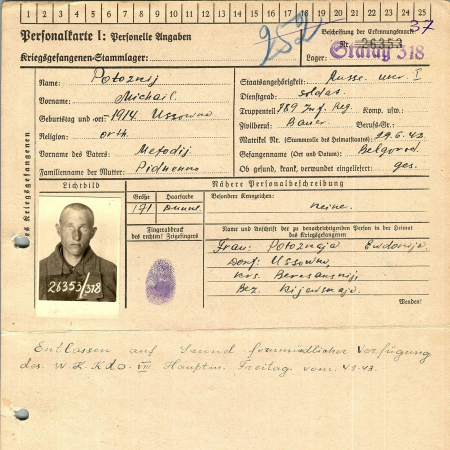 1 2 3 4 5 6 7 8 9 10 11 12 13 14 15 16 17 18 19 20 21 22 23 24 25
Personalkarte I: Personelle Angaben
Beschriftung der Erkennungsmarke
37
252
Nr. 26353
Kriegsgefangenen-Stammlager:
Lager: Stalag 318
des Kriegsgefangenen
Name: Potoznij
Vorname: Michail.
Geburtstag und -ort: 1914. Ussowno
Religion: orth.
Vorname des Vaters: Mefodij
Familienname der Mutter: Pidnenno
Staatsangehörigkeit: Russe.
Dienstgrad: soldat.
Truppenteil: 989 Inf. Reg. Komp. usw.:
Zivilberuf: Bauer. Berufs-Gr.:
Matrikel Nr. (Stammrolle des Heimatstaates): 29.6.42.
Gefangennahme (Ort und Datum): Belgorod.
Ob gesund, krank, verwundet eingeliefert: ges.
Lichtbild
Nähere Personalbeschreibung
Größe
Haarfarbe
Besondere Kennzeichen:
171
keine.
Fingerabdruck
des rechten! Zeigefingers
Name und Anschrift der zu benachrichtigenden Person in der Heimat
des Kriegsgefangenen
Frau: Potoznaja Ewdokija.
Dorf: Ussowno
Krs. Beresanskij
Bez. Kijewskaja
Wenden!
26353/318
Entlassen auf Grund Verfügung
des W.K.Kdo. VIII Hauptm. Freitag vom 4.9.43.